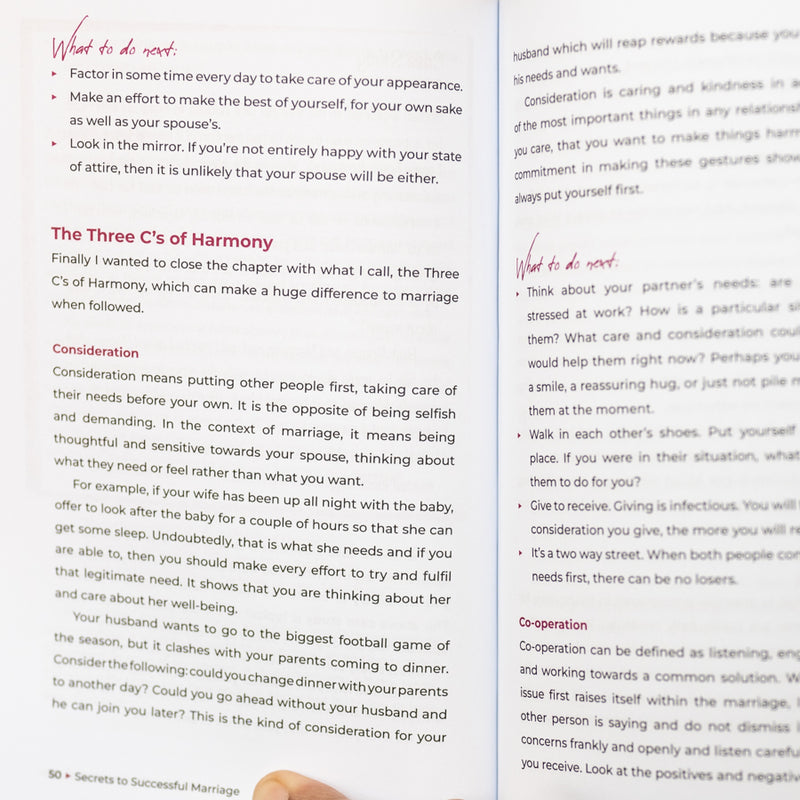 What to do next:
▸ Factor in some time every day to take care of your appearance.
▸ Make an effort to make the best of yourself, for your own sake
as well as your spouse's.
▸ Look in the mirror. If you're not entirely happy with your state
of attire, then it is unlikely that your spouse will be either.
The Three C's of Harmony
Finally I wanted to close the chapter with what I call, the Three
C's of Harmony, which can make a huge difference to marriage
when followed.
Consideration
Consideration means putting other people first, taking care of
their needs before your own. It is the opposite of being selfish
and demanding. In the context of marriage, it means being
thoughtful and sensitive towards your spouse, thinking about
what they need or feel rather than what you want.
For example, if your wife has been up all night with the baby,
offer to look after the baby for a couple of hours so that she can
get some sleep. Undoubtedly, that is what she needs and if you
are able to, then you should make every effort to try and fulfil
that legitimate need. It shows that you are thinking about her
and care about her well-being.
Your husband wants to go to the biggest football game of
the season, but it clashes with your parents coming to dinner.
Consider the following: could you change dinner with your parents
to another day? Could you go ahead without your husband and
he can join you later? This is the kind of consideration for your
50 ▸ Secrets to Successful Marriage
husband which will reap rewards because you
his needs and wants.
Consideration is caring and kindness in
of the most important things in any
you care, that you want to make things
commitment in making these gestures
always put yourself first.
What to do next:
▸ Think about your partner's needs: are
stressed at work? How is a particular
them? What care and consideration
would help them right now? Perhaps you
a smile, a reassuring hug, or just not pile
them at the moment.
▸ Walk in each other's shoes. Put yourself
place. If you were in their situation, what
them to do for you?
▸ Give to receive. Giving is infectious. You will
consideration you give, the more you will
▸ It's a two way street. When both people
needs first, there can be no losers.
Co-operation
Co-operation can be defined as listening,
and working towards a common solution.
issue first raises itself within the marriage,
other person is saying and do not dismiss
concerns frankly and openly and listen
you receive. Look at the positives and